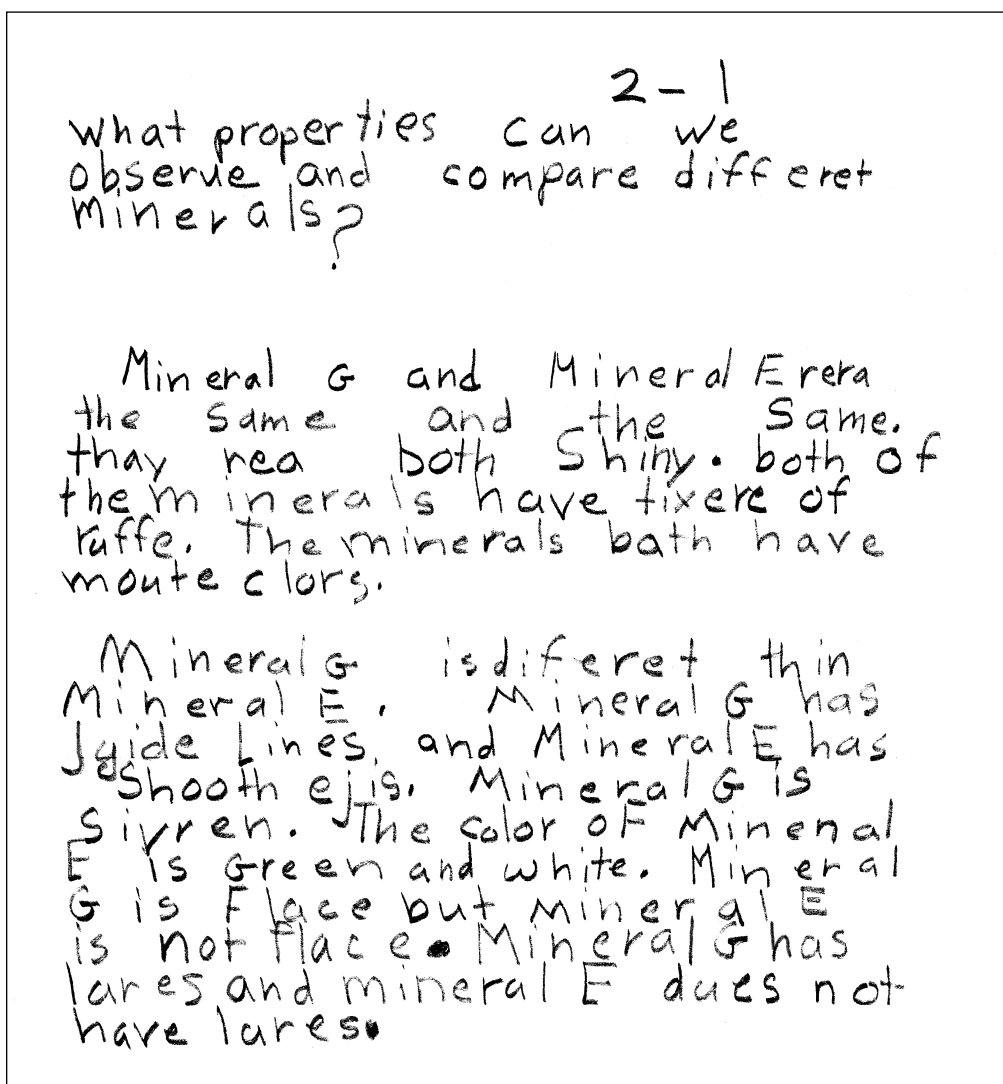 2-1
What properties can we
observe and compare differet
Minerals?
Mineral G and Mineral E rera
the Same and the Same.
thay rea both Shiny. both of
the minerals have tixere of
ruffe. The minerals bath have
moute clors.
Mineral G isdiferet thin
Mineral E. Mineral G has
Lines, and Mineral E has
Shooth ejis. Mineral G is
Sivren. The color oF Minenal
E is Green and white. Mineral
G is Flace but Mineral E
is not flace. Mineral G has
lares and mineral E dues not
have lares.